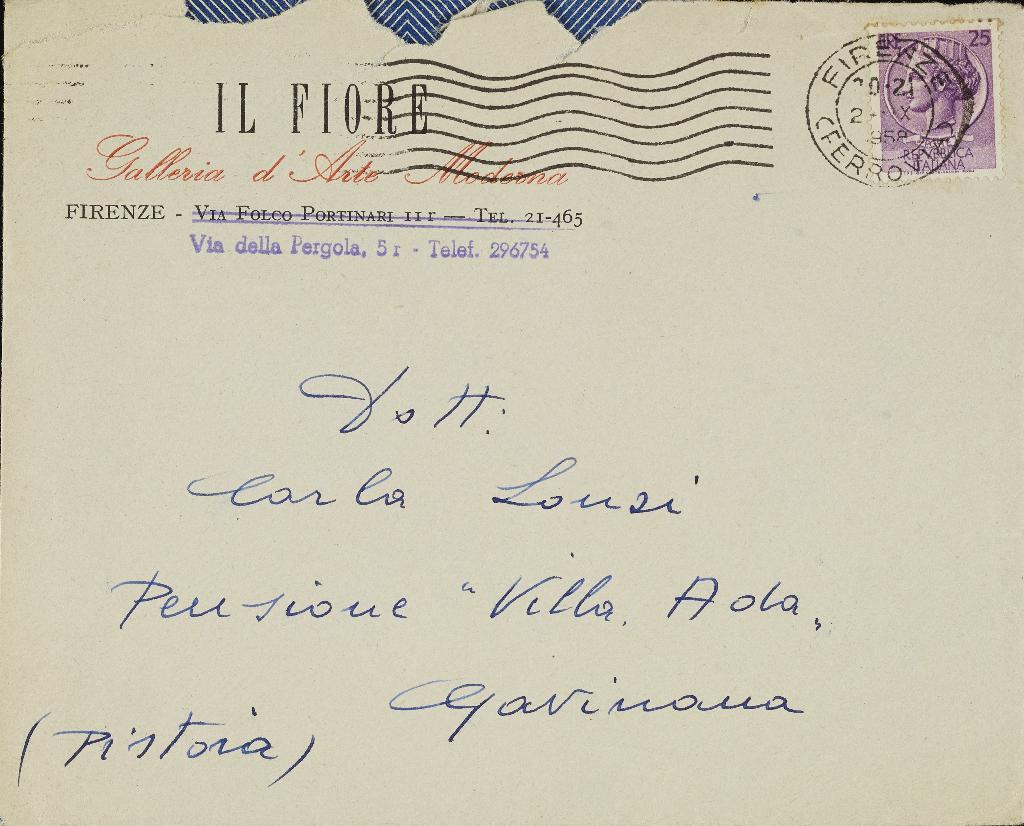 IL FIORE
Galleria d'Arte Moderna
FIRENZE - VIA FOLCO PORTINARI 11 r — TEL. 21-465
Via della Pergola, 5 r - Telef. 296754
25
FIRENZE
FERROVIA
REPUBBLICA
ITALIANA
Dott:
Carla Lonzi
Pensione "Villa Ada"
Gavinana
(Pistoia)